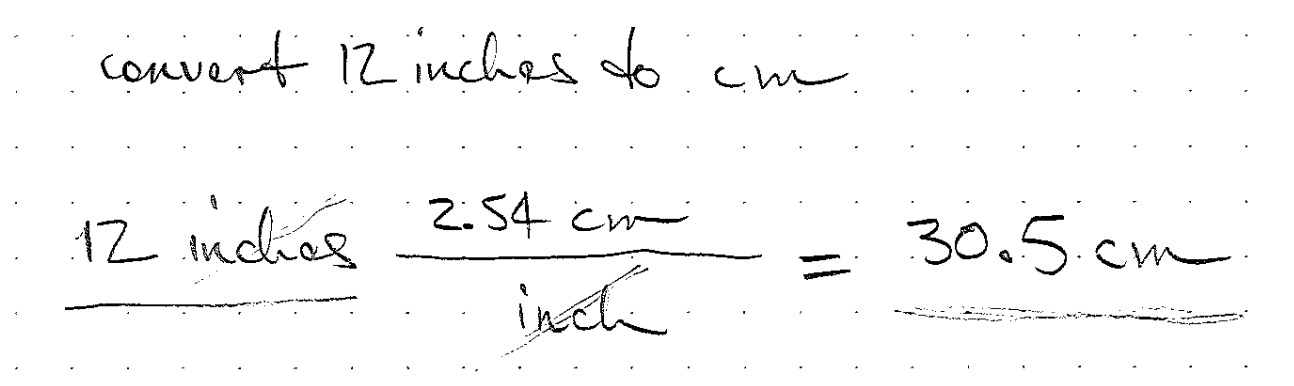 convert 12 inches to cm
12 inches 2.54 cm = 30.5 cm
inch